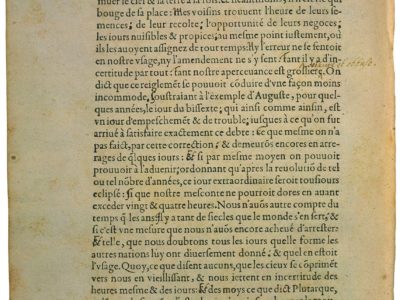 muer le ciel & la terre à la fois. & neantmoins, il n'est rien qui
bouge de sa place: Mes voisins treuuent l'heure de leurs se-
mences; de leur recolte; l'opportunité de leurs negoces;
les iours nuisibles & propices; au mesme point iustement, où
ils les auoyent assignez de tout temps; Ny l'erreur ne se sentoit
en nostre vsage, ny l'amendement ne s'y sent: tant il y a d'in-
certitude par tout: tant nostre aperceuance est grossiere. On
dict que ce reiglemēt se pouuoit cōduire d'vne façon moins
incommode, soustraiant à l'exemple d'Auguste, pour quel-
ques années, le iour du bissexte; qui ainsi comme ainsin, est
vn iour d'empeschemēt & de trouble; iusques à ce qu'on fut
arriué à satisfaire exactement ce debte: Ce que mesme on n'a
pas faict, par cette correction; & demeurōs encores en arre-
rages de q̄lques iours: & si par mesme moyen on pouuoit
prouuoir à l'aduenir; ordonnant qu'apres la reuolutiō de tel
ou tel nōbre d'années, ce iour extraordinaire seroit tousiours
eclipsé: si que nostre mesconte ne pourroit dores en auant
exceder vingt & quatre heures. Nous n'auōs autre compte du
temps q̄ les ans: Il y a tant de siecles que le monde s'en sert; &
si c'est vne mesure que nous n'auons encore acheué d'arrester:
& telle, que nous doubtons tous les iours quelle forme les
autres nations luy ont diuersement donné; & quel en estoit
l'vsage. Quoy, ce que disent aucuns, que les cieux se cōpriment
vers nous en vieillissant, & nous iettent en incertitude des
heures mesme & des iours: & des moys ce que dict Plutarque,